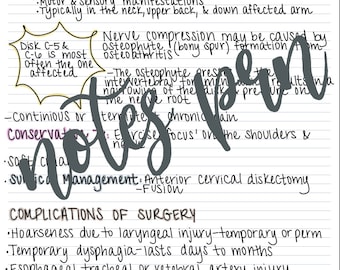 • Motor & sensory manifestations
• Typically in the neck, upper back, & down affected arm
Disk C-5 &
C-6 is most
often the one
affected
Nerve compression may be caused by
osteophyte (bony spur) formation from
osteoarthritis
-The osteophyte
intervertebral
narrowing of the
the nerve root
-Continious or chronic pain
Exercise focus' on the shoulders &
•Surgical Management: Anterior cervical diskectomy
-Fusion
notes pen
COMPLICATIONS OF SURGERY
•Hoarseness due to laryngeal injury-temporary or perm
•Temporary dysphagia-lasts days to months
•Esophageal tracheal or vertebral artery injury